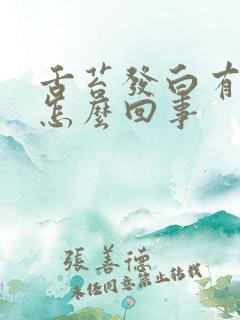 舌苔發白有
怎麼回事
張善德
未經同意禁止轉載